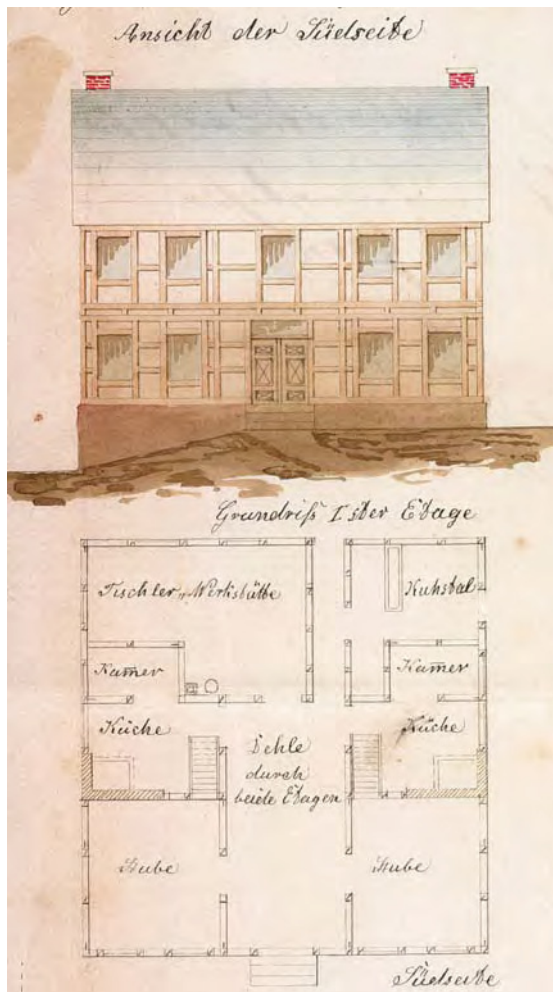 Ansicht der Südseite
Grundriß I ster Etage
Tischler-Werkstätte
Kuhstal
Kam̅er
Kam̅er
Küche
Küche
Dehle
durch
beide Etagen
Stube
Stube
Südseite